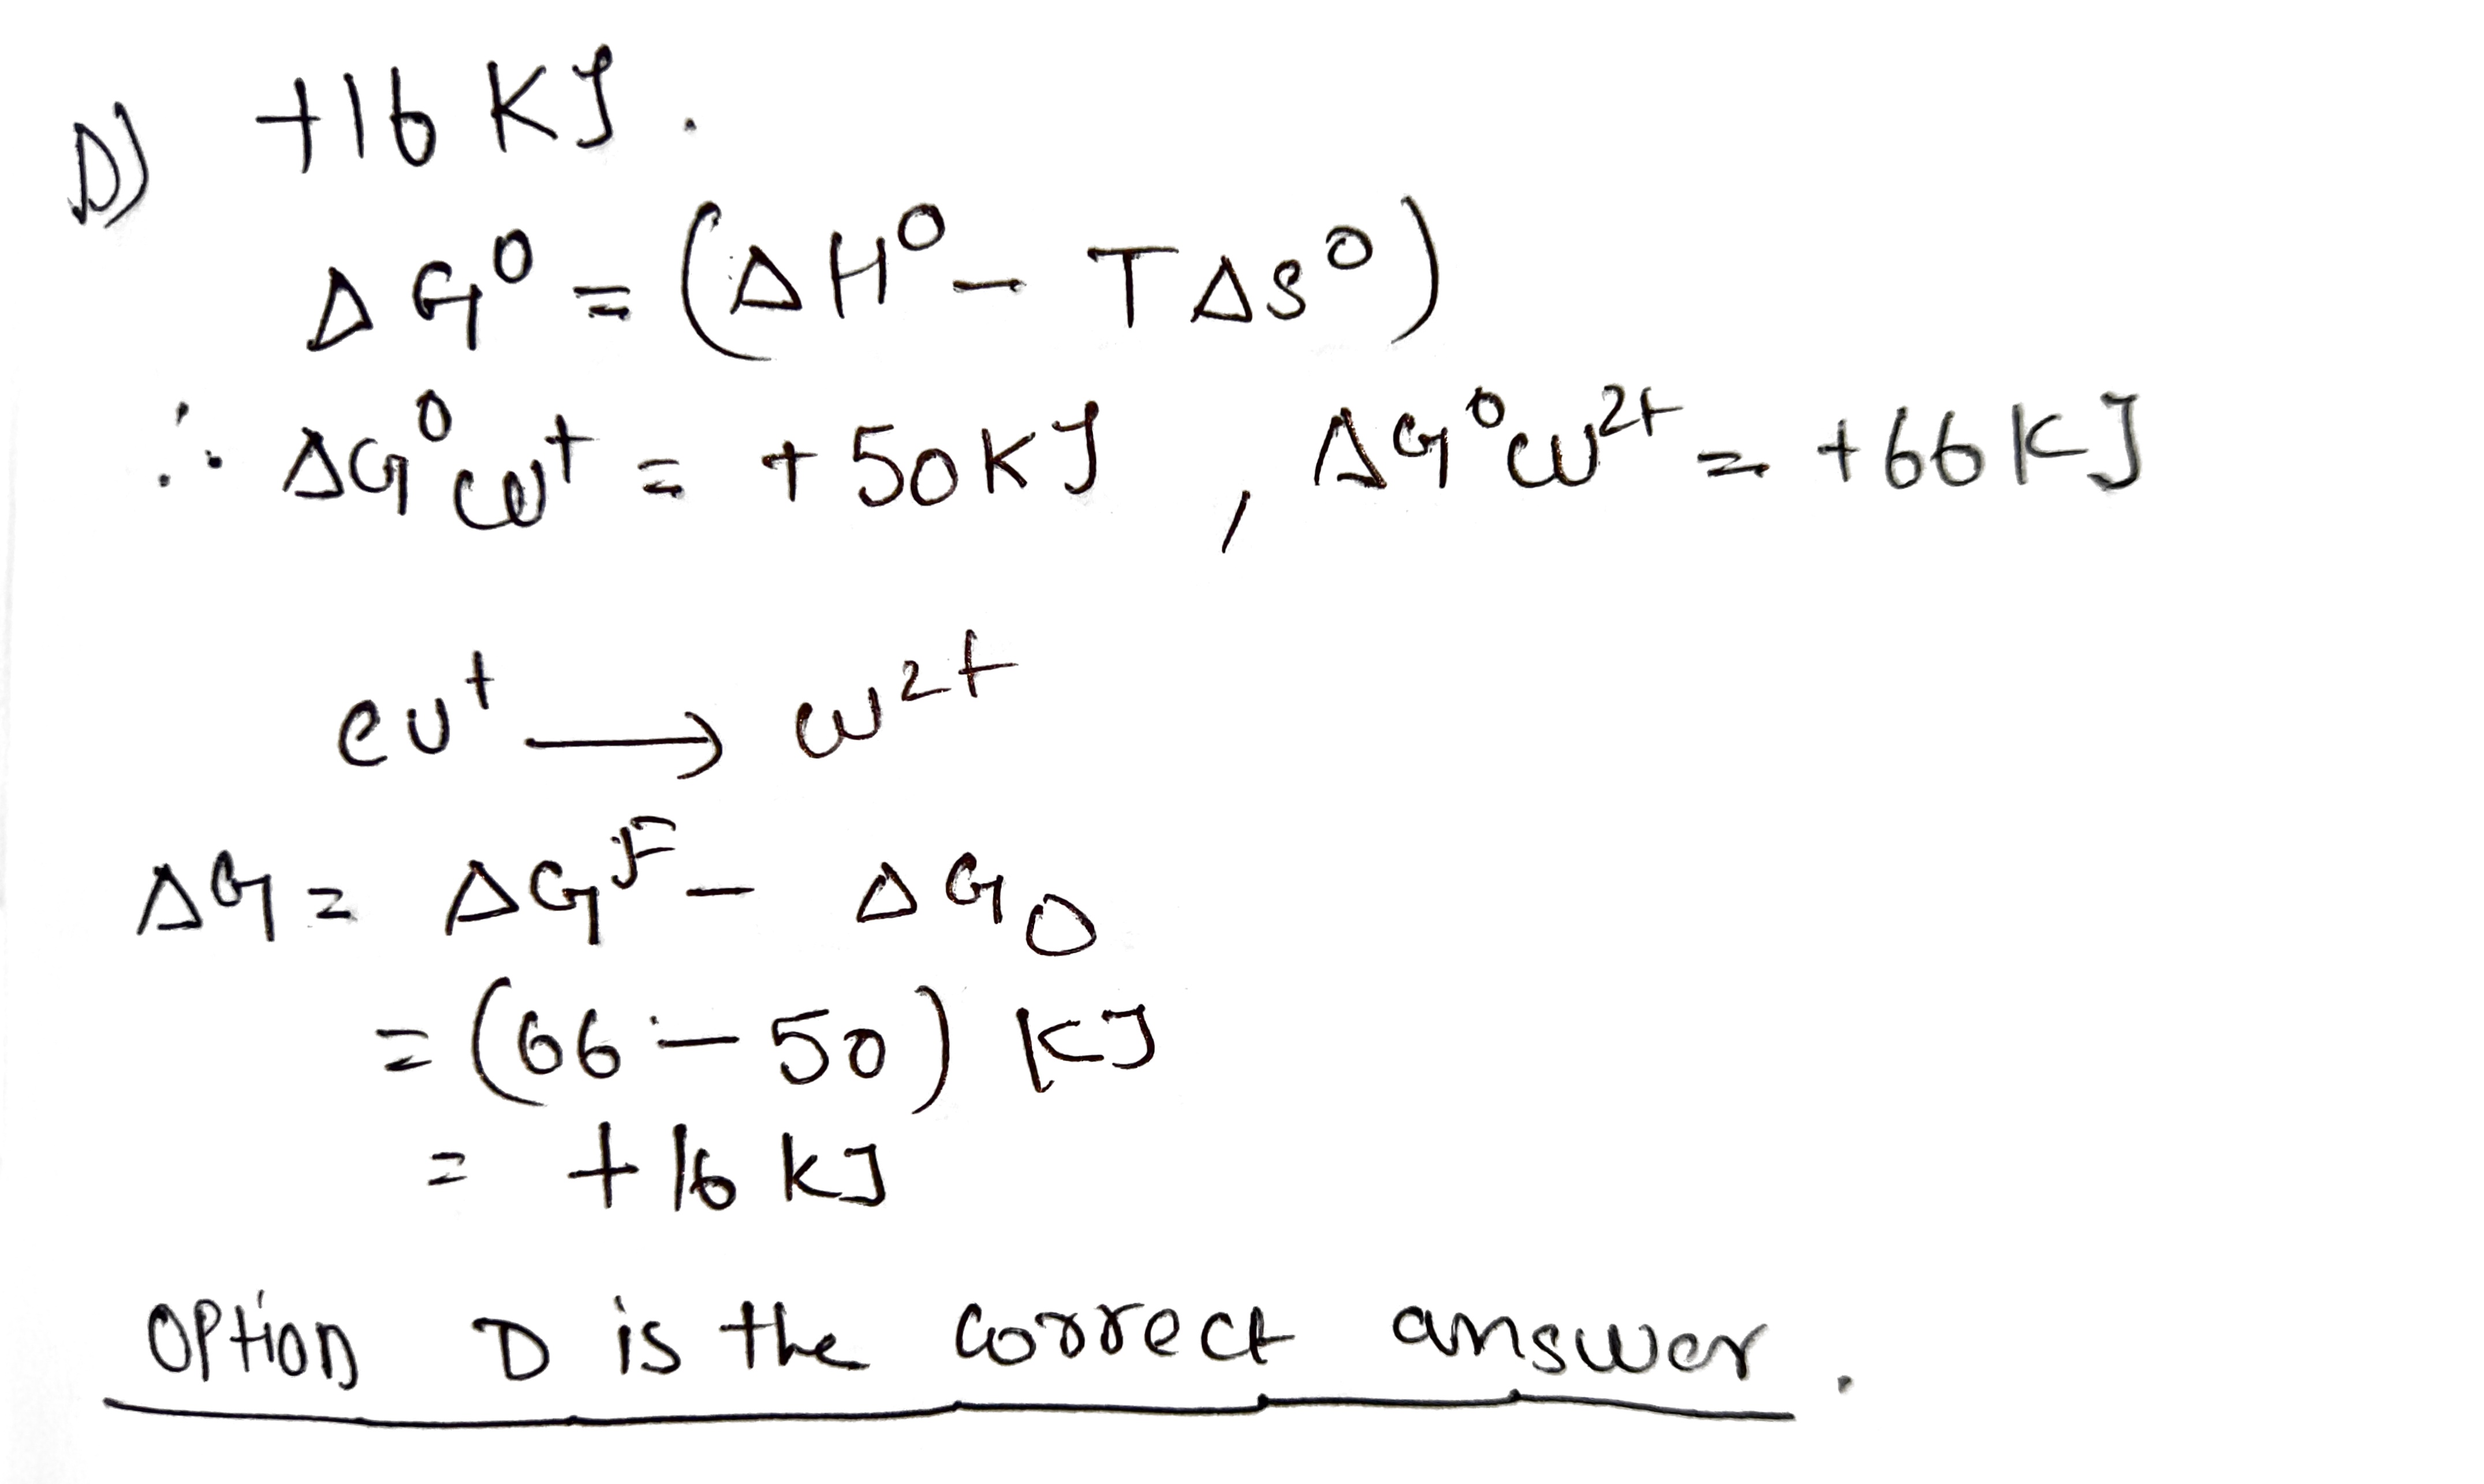 D) +16 KJ.
ΔG⁰ = (ΔH⁰ - TΔS⁰)
∴ ΔG⁰Cu⁺ = +50KJ , ΔG⁰Cu²⁺ = +66KJ
Cu⁺ ⟶ Cu²⁺
ΔG = ΔGᶠ - ΔG₀
= (66 - 50) KJ
= +16 KJ
OPtion D is the correct answer.